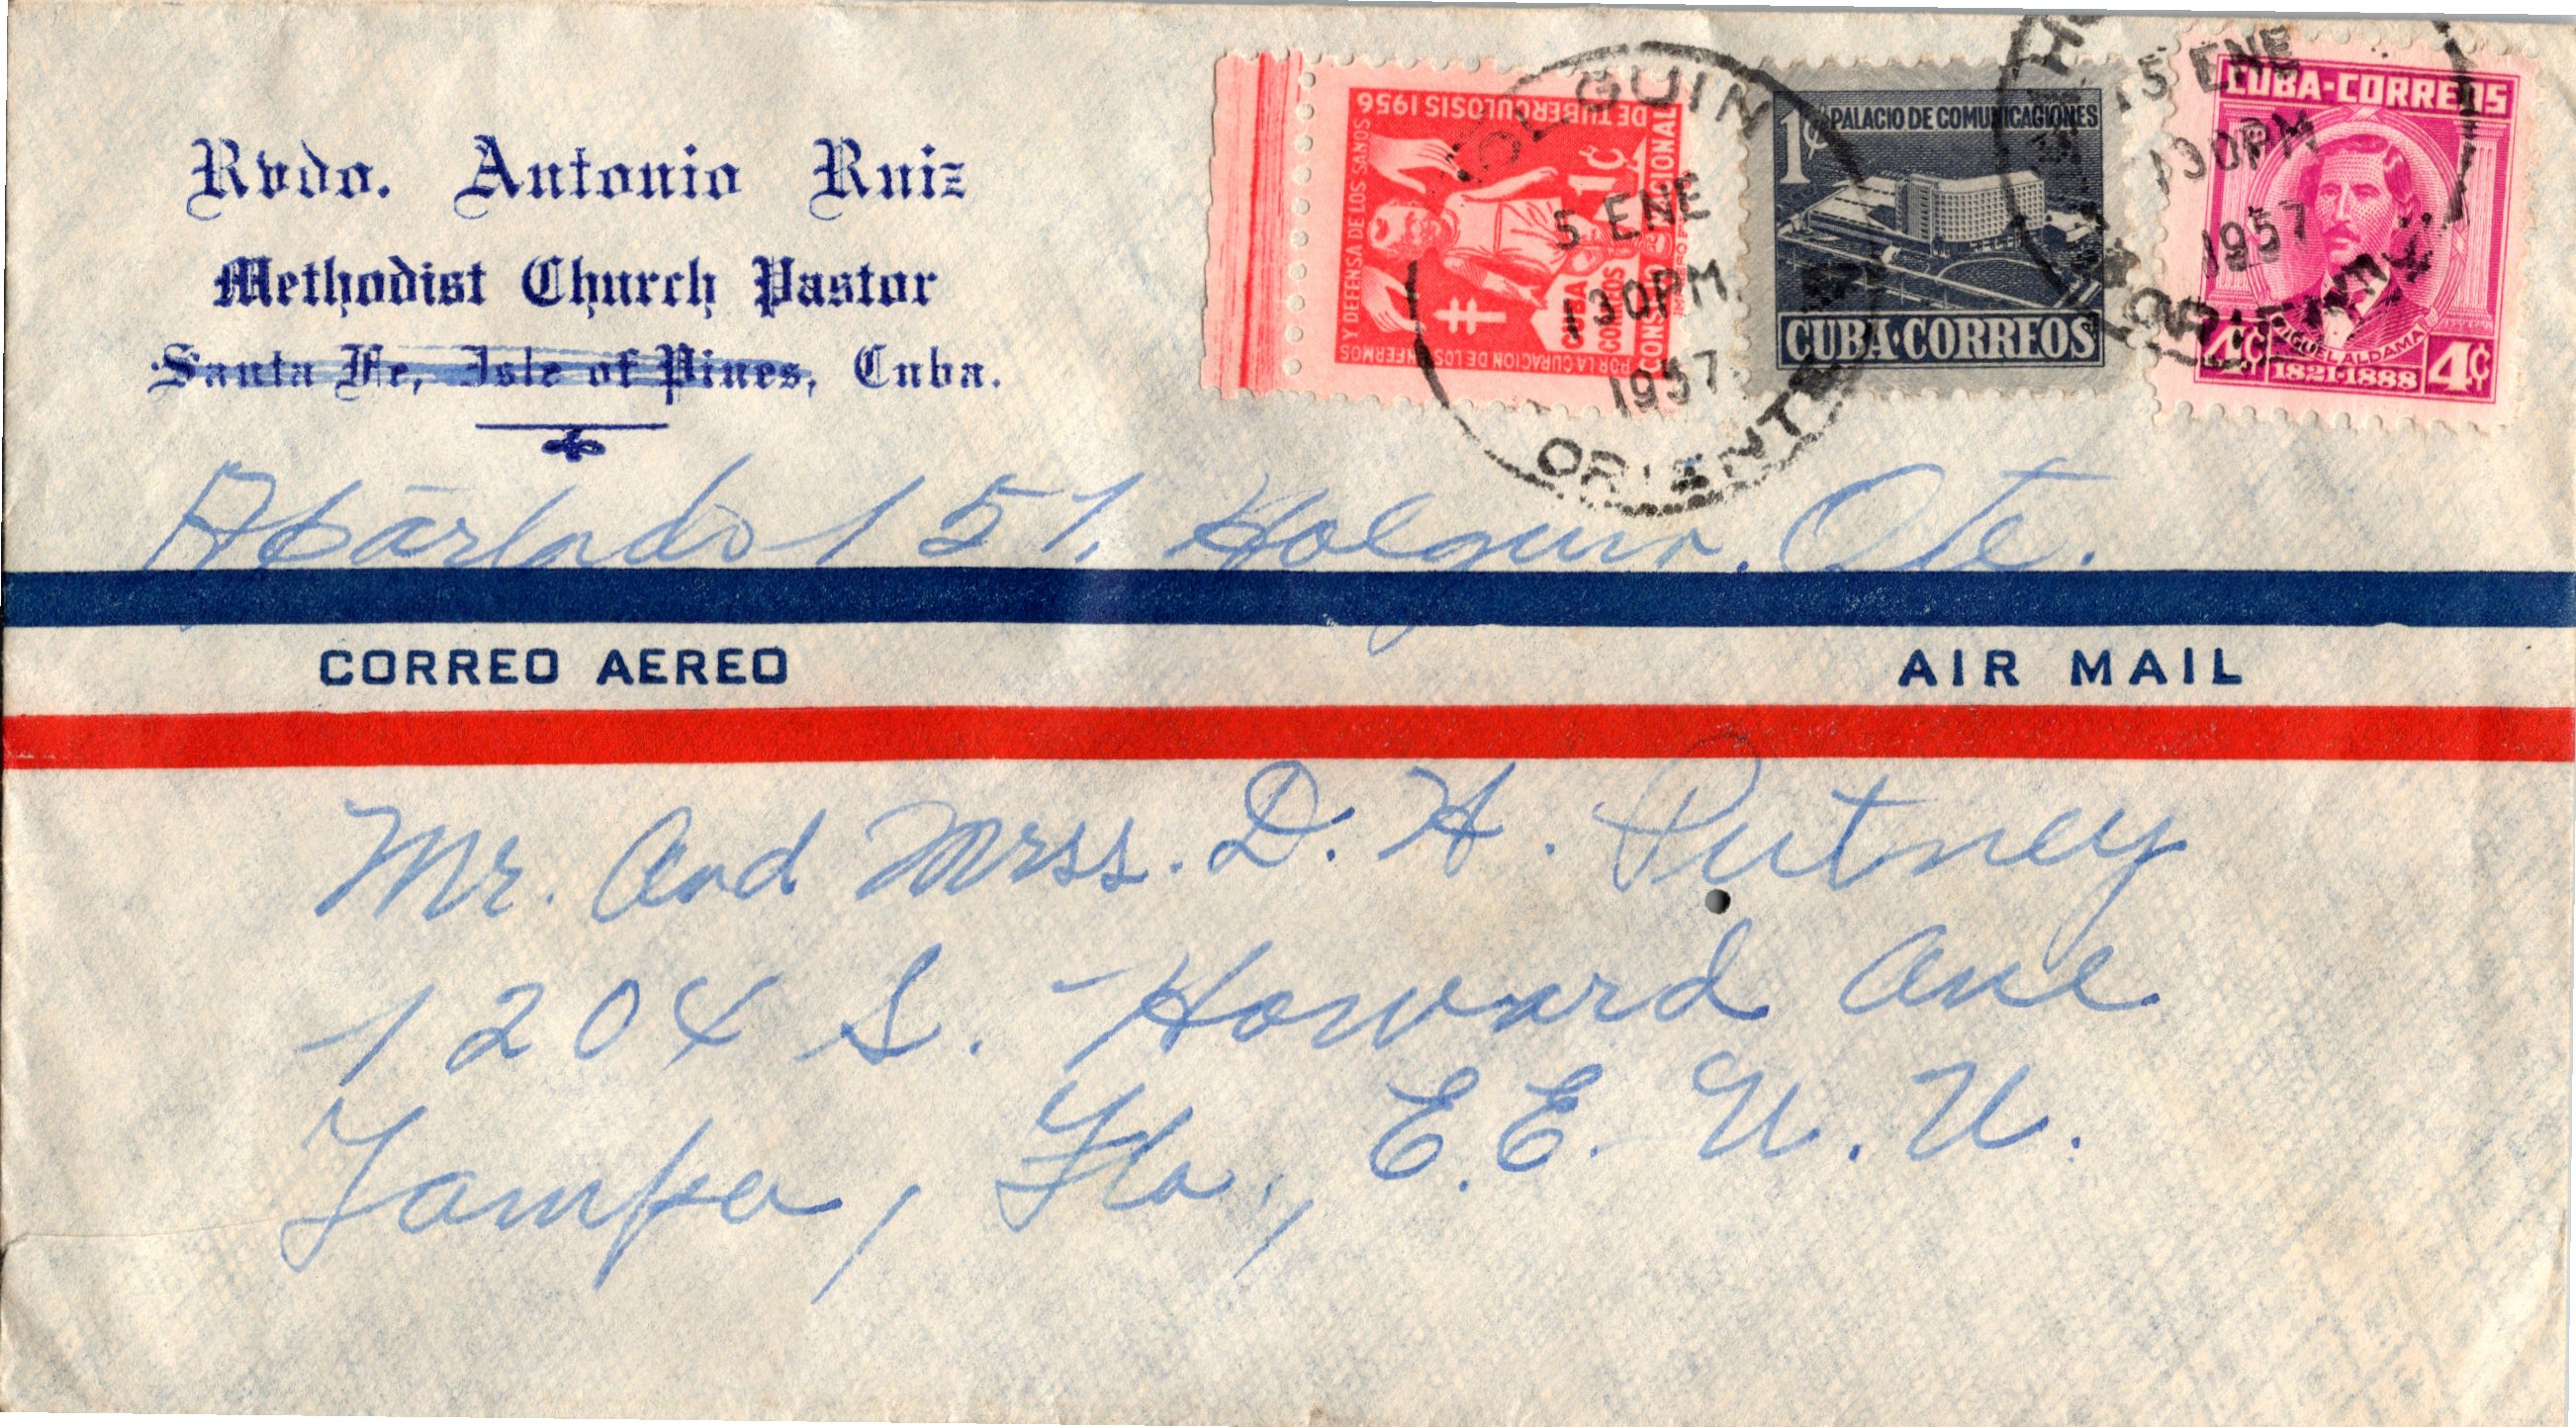 Rvdo. Antonio Ruiz
Methodist Church Pastor
Santa Fe, Isle of Pines, Cuba.
Apartado 157, Holguin, Ote.
DE TUBERCULOSIS 1956
Y DEFENSA DE LOS SANOS
POR LA CURACION DE LOS ENFERMOS
1¢
CUBA
CORREOS
HOLGUIN
5 ENE
130PM
1957
ORIENTE
1¢ PALACIO DE COMUNICACIONES
CUBA·CORREOS
15 ENE
130PM
1957
ORIENTE
CUBA·CORREOS
MIGUEL ALDAMA
4¢ 1821-1888 4¢
CORREO AEREO AIR MAIL
Mr. And Mrss. D. H. Putney
1204 S. Howard Ave
Tampa, Fla., E.E. U.U.